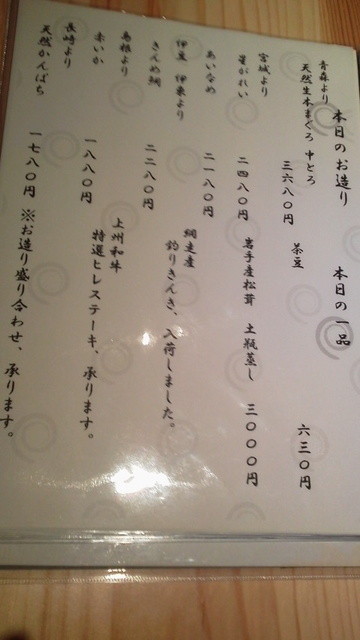 本日のお造り
青森より
天然生本まぐろ 中とろ
三六八〇円
宮城より
星がれい
二四八〇円
あいなめ
二一八〇円
伊豆 伊東より
きんめ鯛
二二八〇円
島根より
赤いか
一八八〇円
長崎より
天然かんぱち
一七八〇円
※お造り盛り合わせ、承ります。
本日の一品
茶豆
六三〇円
岩手産松茸 土瓶蒸し 三〇〇〇円
網走産
釣りきんき、入荷しました。
上州和牛
特選ヒレステーキ、承ります。